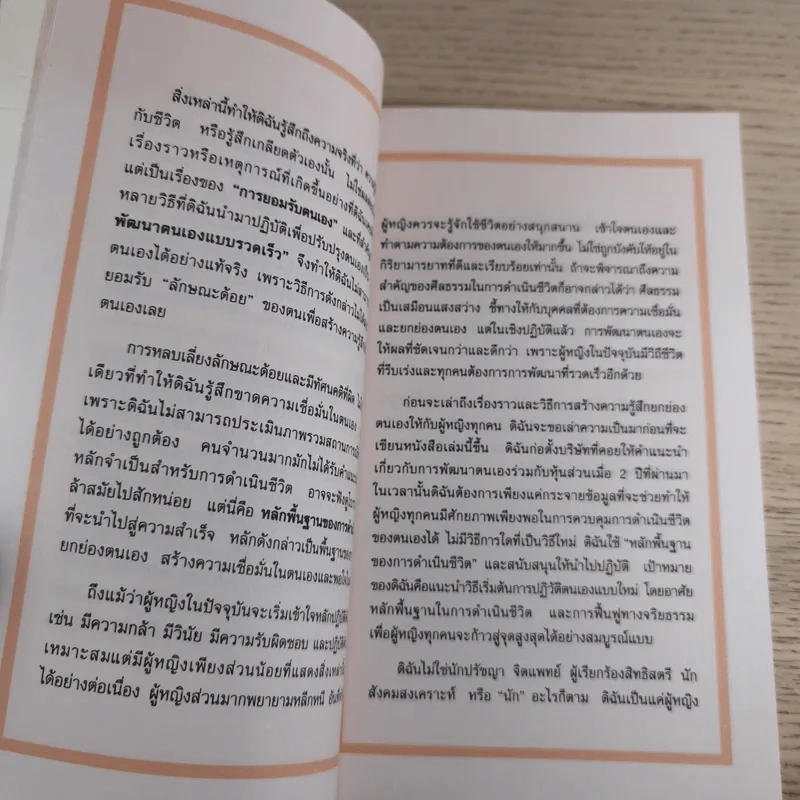 สิ่งเหล่านี้ทำให้ดิฉันรู้สึกถึงความจริงที่ว่า
กับชีวิต หรือรู้สึกเกลียดตัวเองนั้น ไม่ใช่
เรื่องราวหรือเหตุการณ์ที่เกิดขึ้นอย่างที่ดิฉัน
แต่เป็นเรื่องของ “การยอมรับตนเอง”
หลายวิธีที่ดิฉันนำมาปฏิบัติเพื่อปรับปรุงตนเอง
พัฒนาตนเองแบบรวดเร็ว” จึงทำให้ดิฉันไม่
ตนเองได้อย่างแท้จริง เพราะวิธีการดังกล่าวไม่ได้
ยอมรับ “ลักษณะด้อย” ของตนเพื่อสร้างความรู้สึก
ตนเองเลย
การหลบเลี่ยงลักษณะด้อยและมีทัศนคติที่ผิด
เดียวที่ทำให้ดิฉันรู้สึกขาดความเชื่อมั่นในตนเอง
เพราะดิฉันไม่สามารถประเมินภาพรวมสถานการณ์
ได้อย่างถูกต้อง คนจำนวนมากมักไม่ได้รับคำแนะนำ
หลักจำเป็นสำหรับการดำเนินชีวิต อาจจะฟังดู
ล้าสมัยไปสักหน่อย แต่นี่คือ หลักพื้นฐานของการ
ที่จะนำไปสู่ความสำเร็จ หลักดังกล่าวเป็นพื้นฐาน
ยกย่องตนเอง สร้างความเชื่อมั่นในตนเองและ
ถึงแม้ว่าผู้หญิงในปัจจุบันจะเริ่มเข้าใจหลักปฏิบัติ
เช่น มีความกล้า มีวินัย มีความรับผิดชอบ และ
เหมาะสมแต่มีผู้หญิงเพียงส่วนน้อยที่แสดงสิ่งเหล่านี้
ได้อย่างต่อเนื่อง ผู้หญิงส่วนมากพยายามหลีกหนี
ผู้หญิงควรจะรู้จักใช้ชีวิตอย่างสนุกสนาน เข้าใจตนเองและ
ทำตามความต้องการของตนเองให้มากขึ้น ไม่ใช่ถูกบังคับให้อยู่ใน
กิริยามารยาทที่ดีและเรียบร้อยเท่านั้น ถ้าจะพิจารณาถึงความ
สำคัญของศีลธรรมในการดำเนินชีวิตก็อาจกล่าวได้ว่า ศีลธรรม
เป็นเสมือนแสงสว่าง ชี้ทางให้กับบุคคลที่ต้องการความเชื่อมั่น
และยกย่องตนเอง แต่ในเชิงปฏิบัติแล้ว การพัฒนาตนเองจะ
ให้ผลที่ชัดเจนกว่าและดีกว่า เพราะผู้หญิงในปัจจุบันมีวิถีชีวิต
ที่รีบเร่งและทุกคนต้องการการพัฒนาที่รวดเร็วอีกด้วย
ก่อนจะเล่าถึงเรื่องราวและวิธีการสร้างความรู้สึกยกย่อง
ตนเองให้กับผู้หญิงทุกคน ดิฉันจะขอเล่าความเป็นมาก่อนที่จะ
เขียนหนังสือเล่มนี้ขึ้น ดิฉันก่อตั้งบริษัทที่คอยให้คำแนะนำ
เกี่ยวกับการพัฒนาตนเองร่วมกับหุ้นส่วนเมื่อ 2 ปีที่ผ่านมา
ในเวลานั้นดิฉันต้องการเพียงแค่กระจายข้อมูลที่จะช่วยทำให้
ผู้หญิงทุกคนมีศักยภาพเพียงพอในการควบคุมการดำเนินชีวิต
ของตนเองได้ ไม่มีวิธีการใดที่เป็นวิธีใหม่ ดิฉันใช้ “หลักพื้นฐาน
ของการดำเนินชีวิต” และสนับสนุนให้นำไปปฏิบัติ เป้าหมาย
ของดิฉันคือแนะนำวิธีเริ่มต้นการปฏิวัติตนเองแบบใหม่ โดยอาศัย
หลักพื้นฐานในการดำเนินชีวิต และการฟื้นฟูทางจริยธรรม
เพื่อผู้หญิงทุกคนจะก้าวสู่จุดสูงสุดได้อย่างสมบูรณ์แบบ
ดิฉันไม่ใช่นักปรัชญา จิตแพทย์ ผู้เรียกร้องสิทธิสตรี นัก
สังคมสงเคราะห์ หรือ “นัก” อะไรก็ตาม ดิฉันเป็นแค่ผู้หญิง